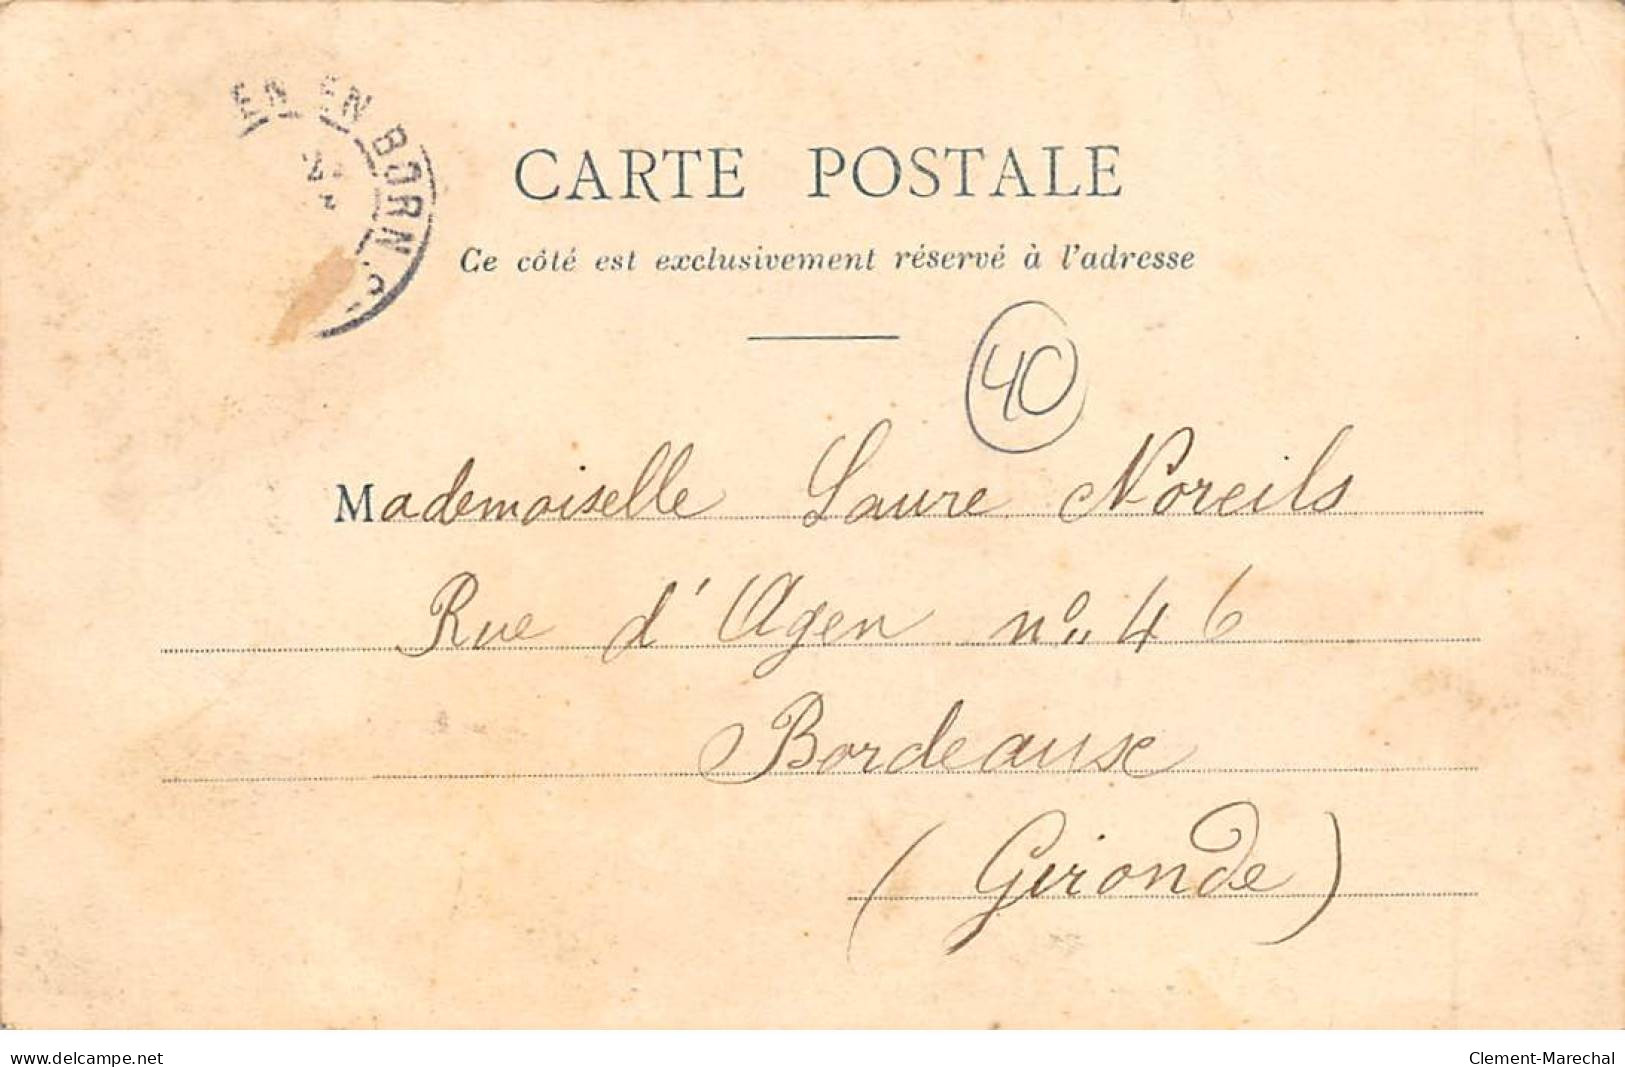 EN EN BORN
CARTE POSTALE
Ce côté est exclusivement réservé à l'adresse
40
Mademoiselle Laure Noreils
Rue d'Agen nº 46
Bordeaux
(Gironde)
www.delcampe.net
Clement-Marechal